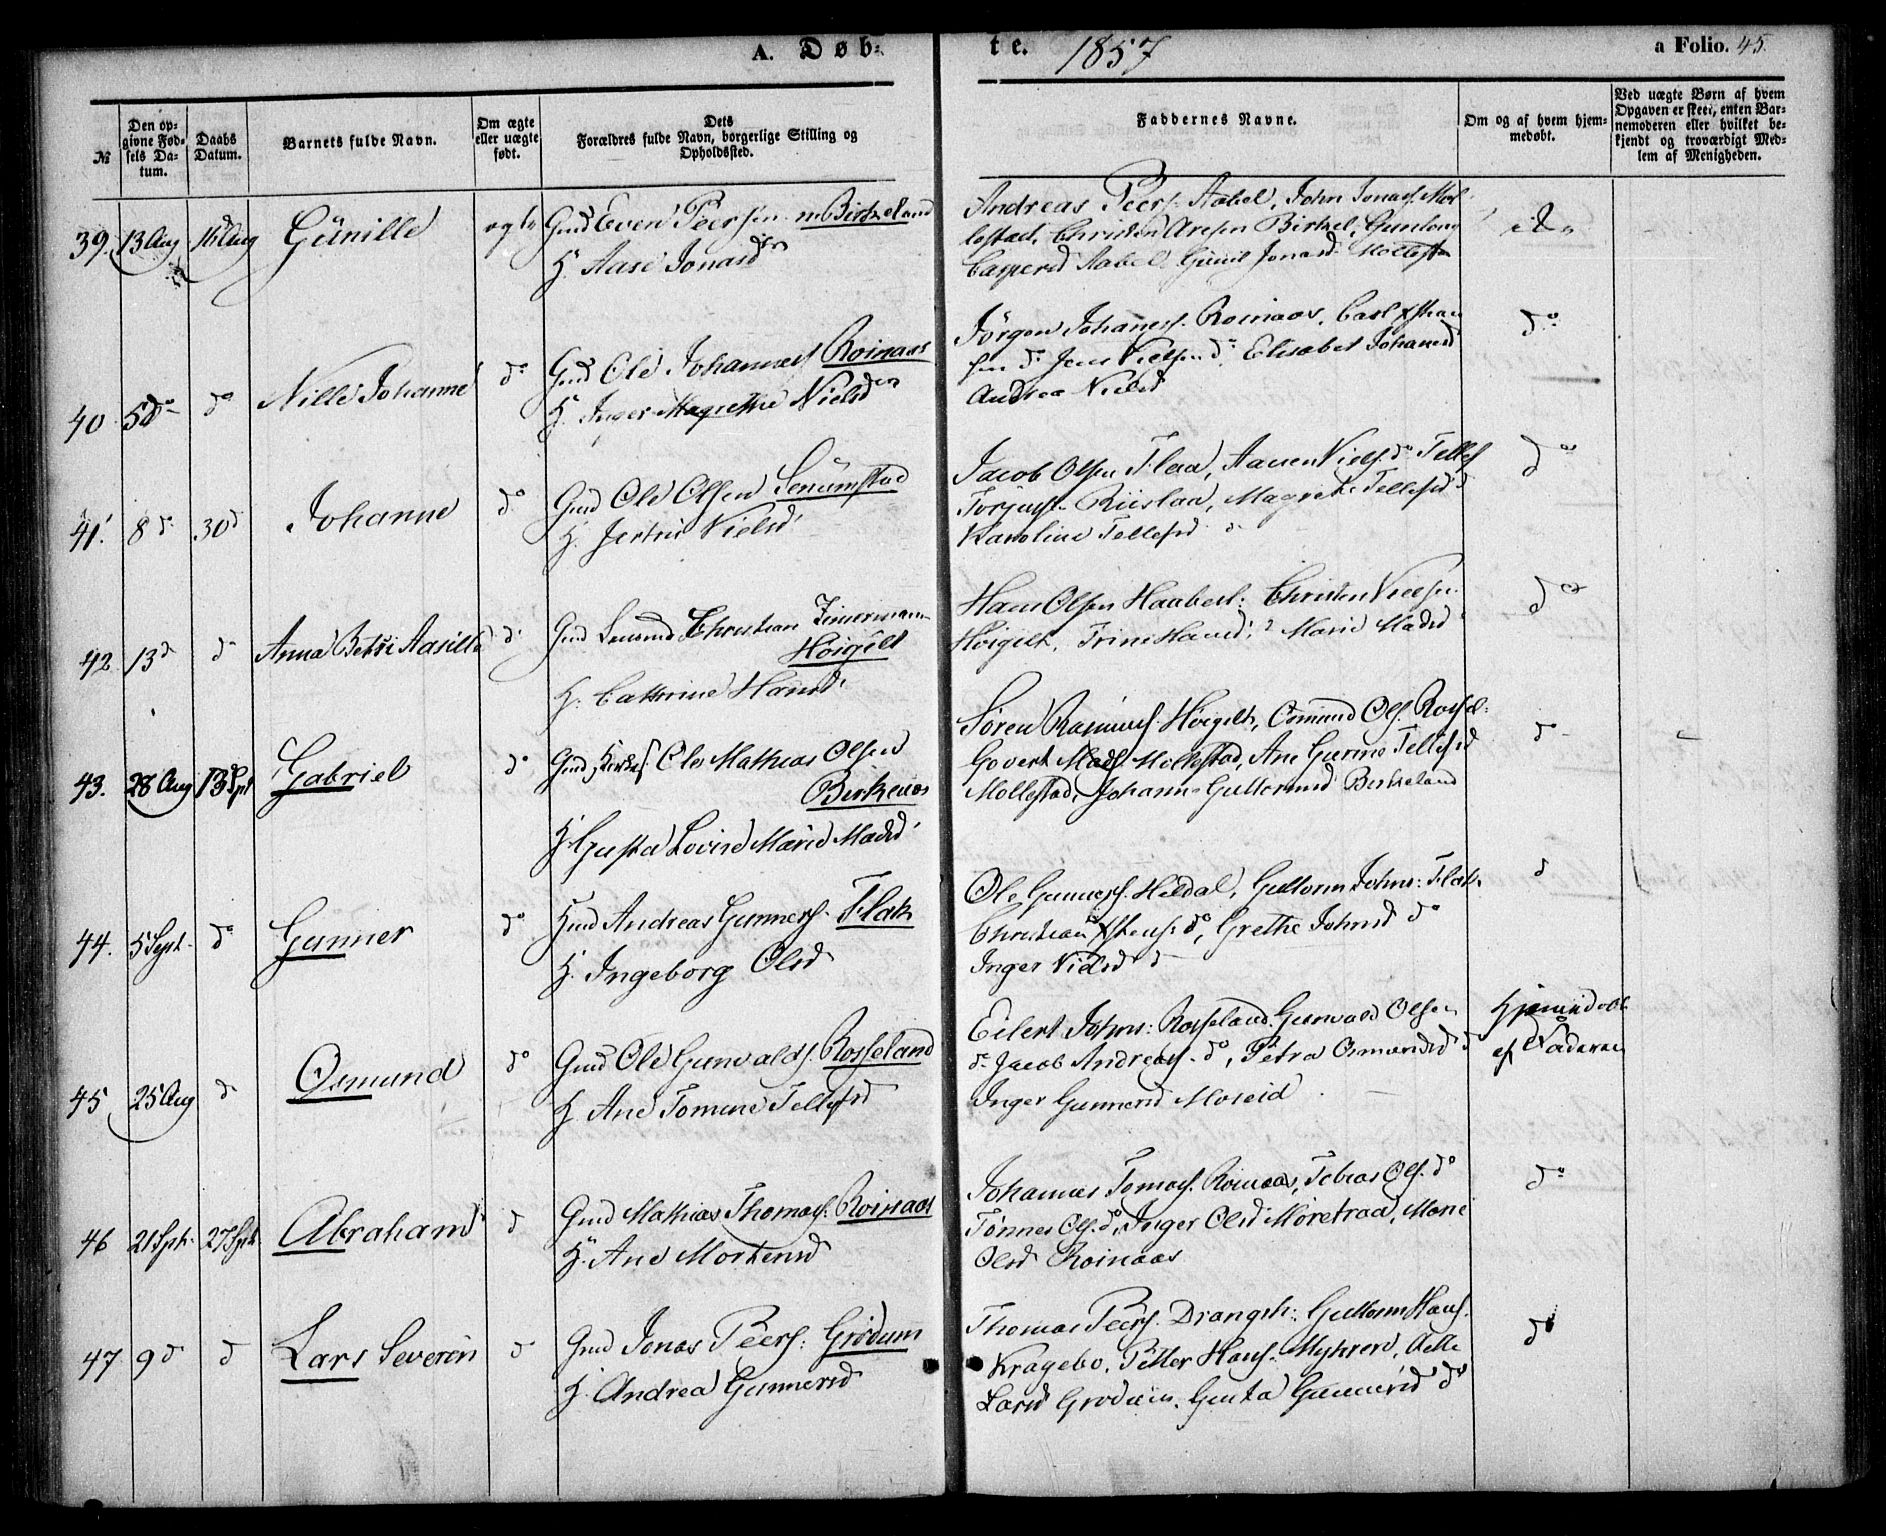 A. Døb-
te. 1857
a Folio. 45.
№
Den op-
givne Fød-
sels Da-
tum.
Daabs
Datum.
Barnets fulde Navn.
Om ægte
eller uægte
født.
Dets
Forældres fulde Navn, borgerlige Stilling og
Opholdssted.
Faddernes Navne.
Om og af hvem hjem-
medøbt.
Ved uægte Børn af hvem
Opgaven er skeet, enten Bar-
nemoderen eller hvilket be-
kjendt og troværdigt Med-
lem af Menigheden.
39. 13 Aug 16 Aug Gunille ægte
Gmd Even Peersen Birkeland
H. Aase Jonasd
Andreas Peers. Aabel, John Jonass. Mol-
lestad, Christen Aresen Birkel, Gunlaug
Caspersd Aabel, Gunil Jonasd Mollest
40 5 do do Nille Johanne do
Gmd Ole Johannes Roinaas
H. Inger Magrethe Nielsd
Jörgen Johaness. Roinaas, Carl
sen do Jens Nielsen do, Elisabet Johanesd
Andrea Nielsd
do
41. 8 d 30 d Johanne do
Gmd Ole Olsen Senumstad
H. Jertru Nielsd
Jacob Olsen Flaa, Aanen Niels. do Tellef
Torjuss. Riislaa, Magrete Tellefsd d
Karoline Tellefsd d
do
42 13 d d Anna Betsi Aasille d
Gmd Christian Timermann
Höigilt
H. Cathrine Hansd
Hans Olsen Haabesl: Christen Nielsen
Höigilt, Trine Hansd, Marie Madsd
do
43. 28 Aug 13 Sept Gabriel do
Gmd Ole Mathias Olsen
Birkenes
H. Gusta Lovise Marie Madsd
Sören Rasmus. Höigilt, Osmund Ols. Rossel:
Govert Mads. Mollestad, Ane Gurine Tellefsd
Mollestad, Johanne Guttormsd Birkeland
d
44. 5 Sept. do Gunner do
Hmd Andreas Gunners. Flak
H. Ingeborg Olsd
Ole Gunners. Heldal, Guttorm Johns: Flak
Christian do, Grethe Johnsd do
Inger Nielsd d
d
45 25 Aug d Osmund do
Gmd Ole Gunvalds. Rosseland
H. Ane Tomine Tellefsd
Eilert Johns: Rosseland, Gunvald Olsen
do Jacob Andreas. do, Petra Osmundsd d
Inger Gunnersd Moseid
Hjemmedøbt
af Faderen
46 21 Sept. 27 Sept Abraham d
Gmd Mathias Thomas. Roinaas
H. Ane Mortensd
Johannes Tomas. Roinaas, Tobias Ols. do
Tönnes Ols. do, Inger Olsd Moretraa, Mone
Olsd Roinaas
do
47 9 d d Lars Severin d
Gmd Jonas Peers: Grödum
H. Andrea Gunnersd
Thomas Peers. Drangsh: Guttorm Hans.
Kragebo, Petter Hans. Myhren,
Larsd Grodum, Gunta Gunnersd do
do